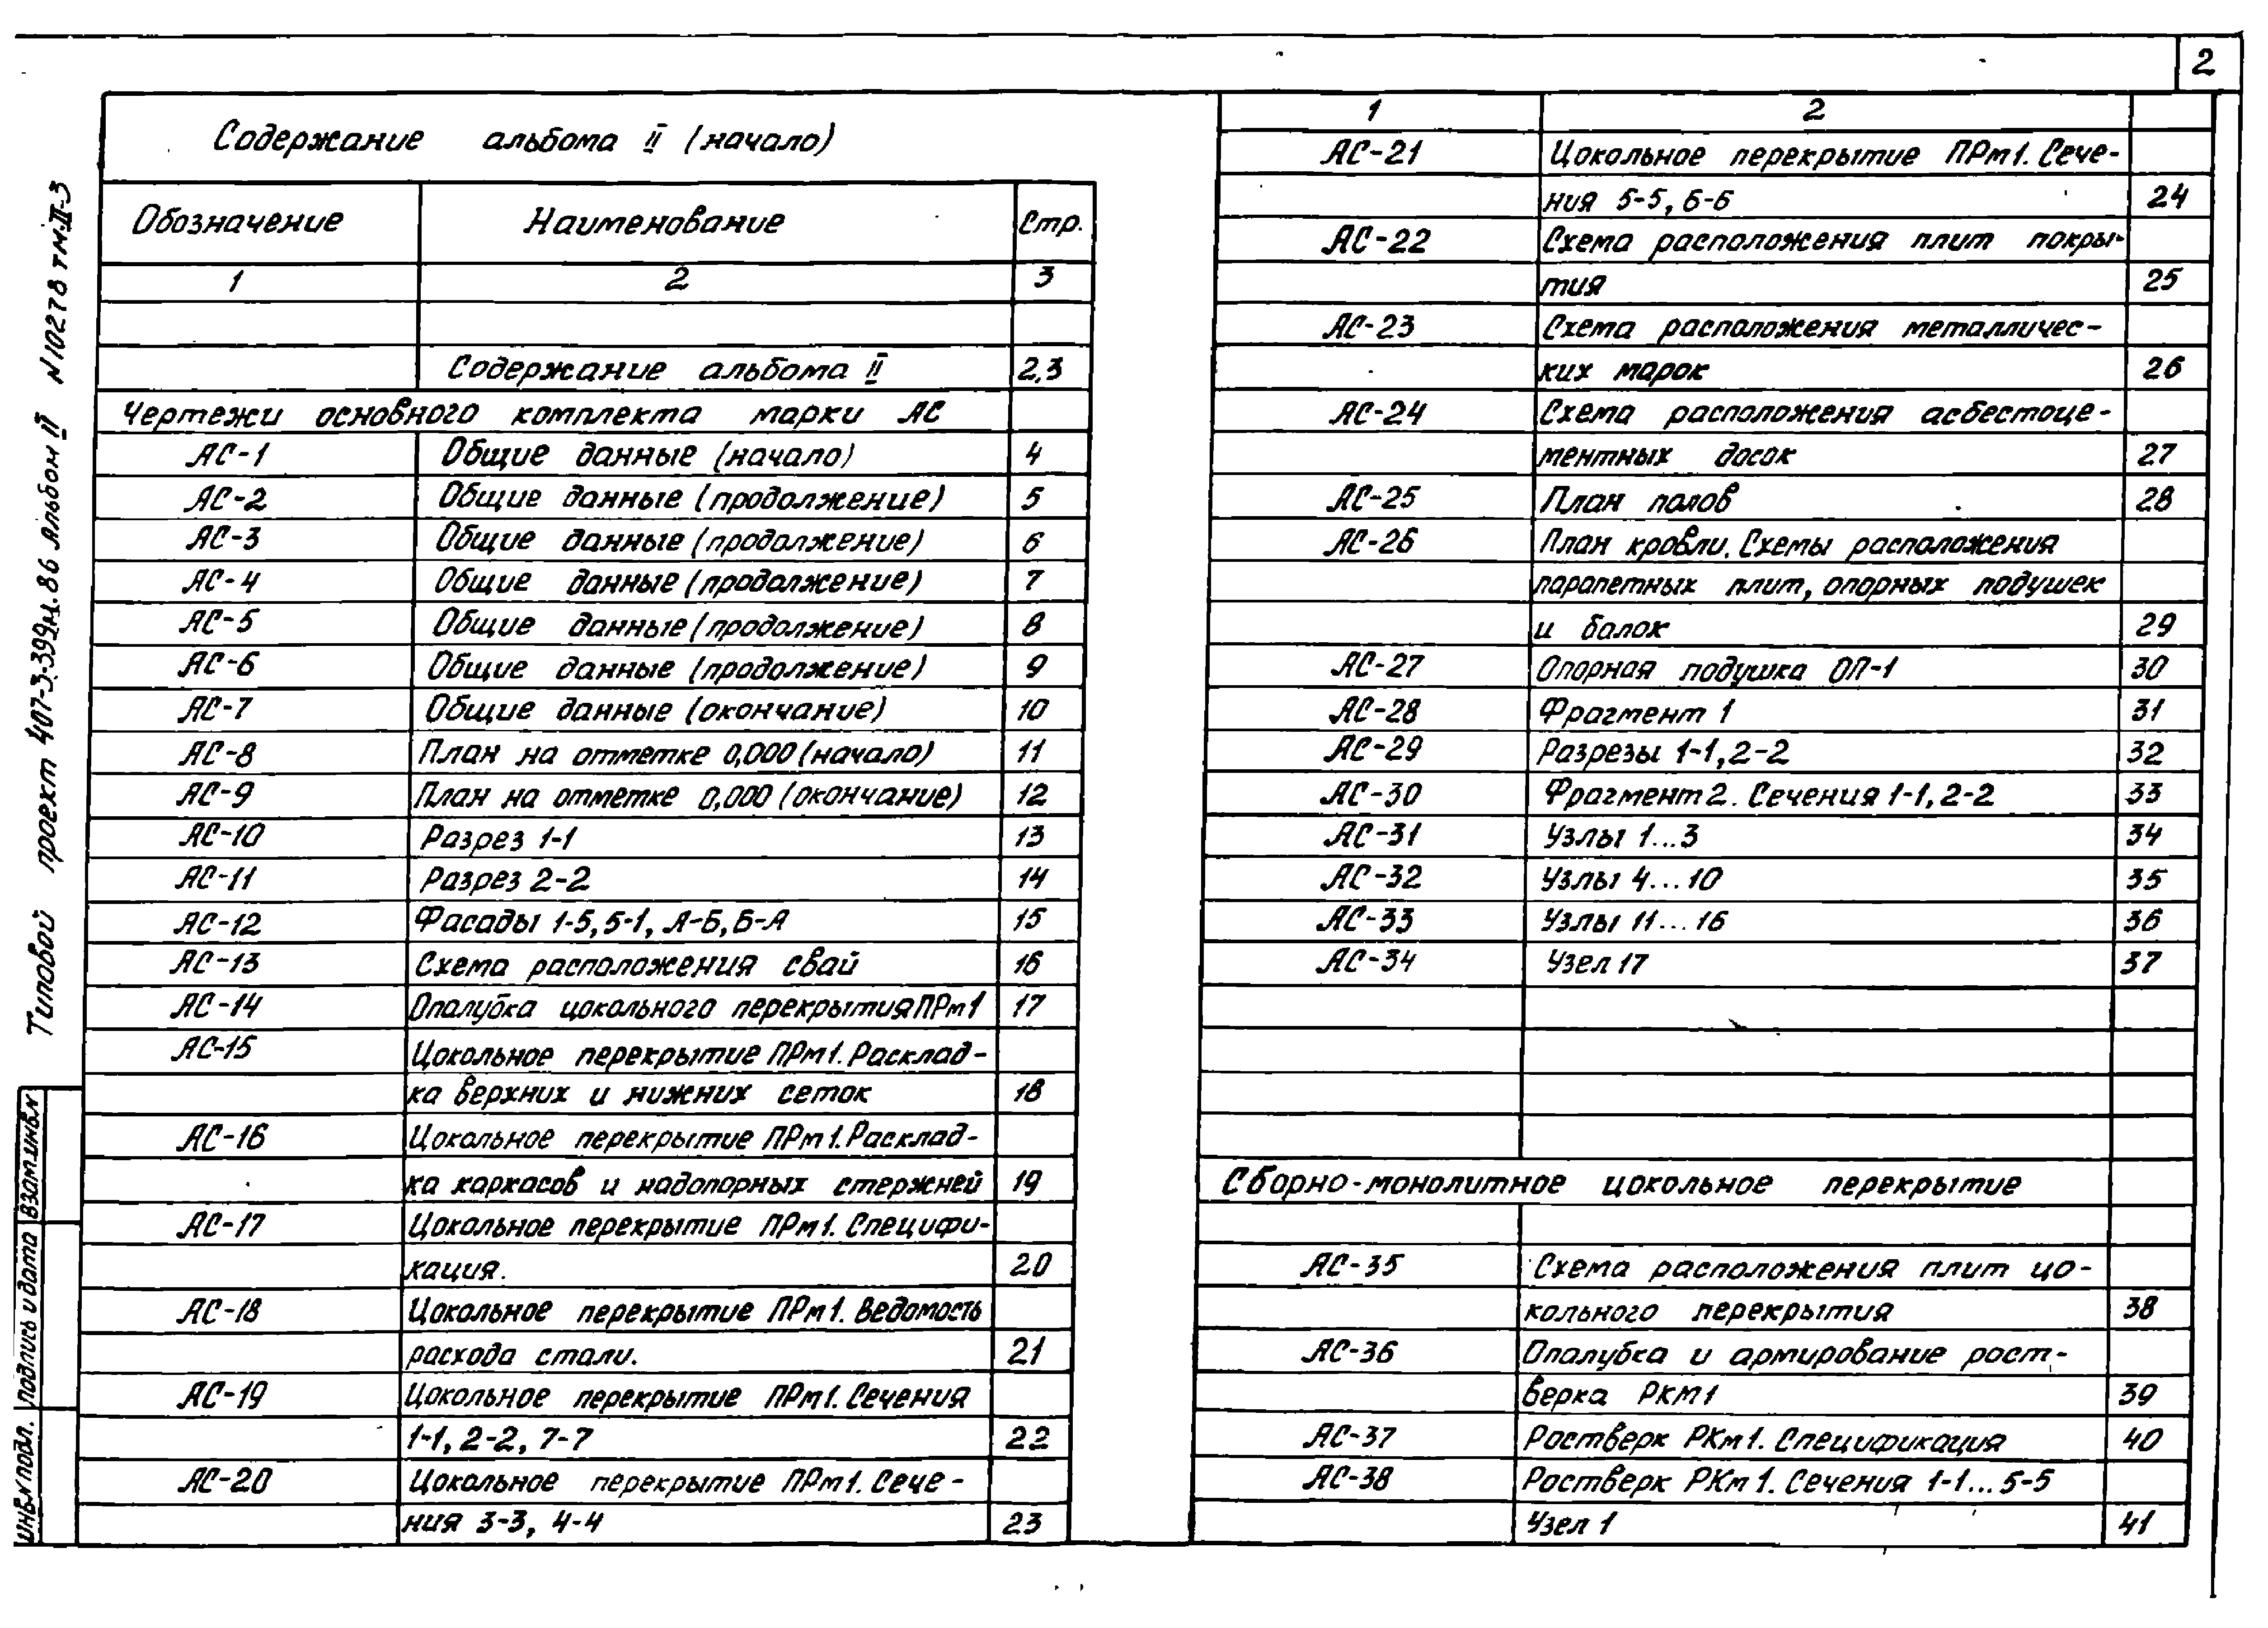 2
Содержание альбома II (начало)
Обозначение Наименование Стр.
1 2 3
Содержание альбома II 2,3
Чертежи основного комплекта марки АС
АС-1 Общие данные (начало) 4
АС-2 Общие данные (продолжение) 5
АС-3 Общие данные (продолжение) 6
АС-4 Общие данные (продолжение) 7
АС-5 Общие данные (продолжение) 8
АС-6 Общие данные (продолжение) 9
АС-7 Общие данные (окончание) 10
АС-8 План на отметке 0,000 (начало) 11
АС-9 План на отметке 0,000 (окончание) 12
АС-10 Разрез 1-1 13
АС-11 Разрез 2-2 14
АС-12 Фасады 1-5, 5-1, А-Б, Б-А 15
АС-13 Схема расположения свай 16
АС-14 Опалубка цокольного перекрытия ПРм1 17
АС-15 Цокольное перекрытие ПРм1. Расклад-
ка верхних и нижних сеток 18
АС-16 Цокольное перекрытие ПРм1. Расклад-
ка каркасов и надопорных стержней 19
АС-17 Цокольное перекрытие ПРм1. Специфи-
кация. 20
АС-18 Цокольное перекрытие ПРм1. Ведомость
расхода стали. 21
АС-19 Цокольное перекрытие ПРм1. Сечения
1-1, 2-2, 7-7 22
АС-20 Цокольное перекрытие ПРм1. Сече-
ния 3-3, 4-4 23
1 2
АС-21 Цокольное перекрытие ПРм1. Сече-
ния 5-5, 6-6 24
АС-22 Схема расположения плит покры-
тия 25
АС-23 Схема расположения металличес-
ких марок 26
АС-24 Схема расположения асбестоце-
ментных досок 27
АС-25 План полов 28
АС-26 План кровли. Схемы расположения
парапетных плит, опорных подушек
и балок 29
АС-27 Опорная подушка ОП-1 30
АС-28 Фрагмент 1 31
АС-29 Разрезы 1-1, 2-2 32
АС-30 Фрагмент 2. Сечения 1-1, 2-2 33
АС-31 Узлы 1...3 34
АС-32 Узлы 4...10 35
АС-33 Узлы 11...16 36
АС-34 Узел 17 37
Сборно-монолитное цокольное перекрытие
АС-35 Схема расположения плит цо-
кольного перекрытия 38
АС-36 Опалубка и армирование рост-
верка РКм1 39
АС-37 Ростверк РКм1. Спецификация 40
АС-38 Ростверк РКм1. Сечения 1-1...5-5
Узел 1 41
Типовой проект 407-3-399м.86 Альбом II N10278 тм-II-3
Взам.инв.N
Подпись и дата
Инв.N подл.